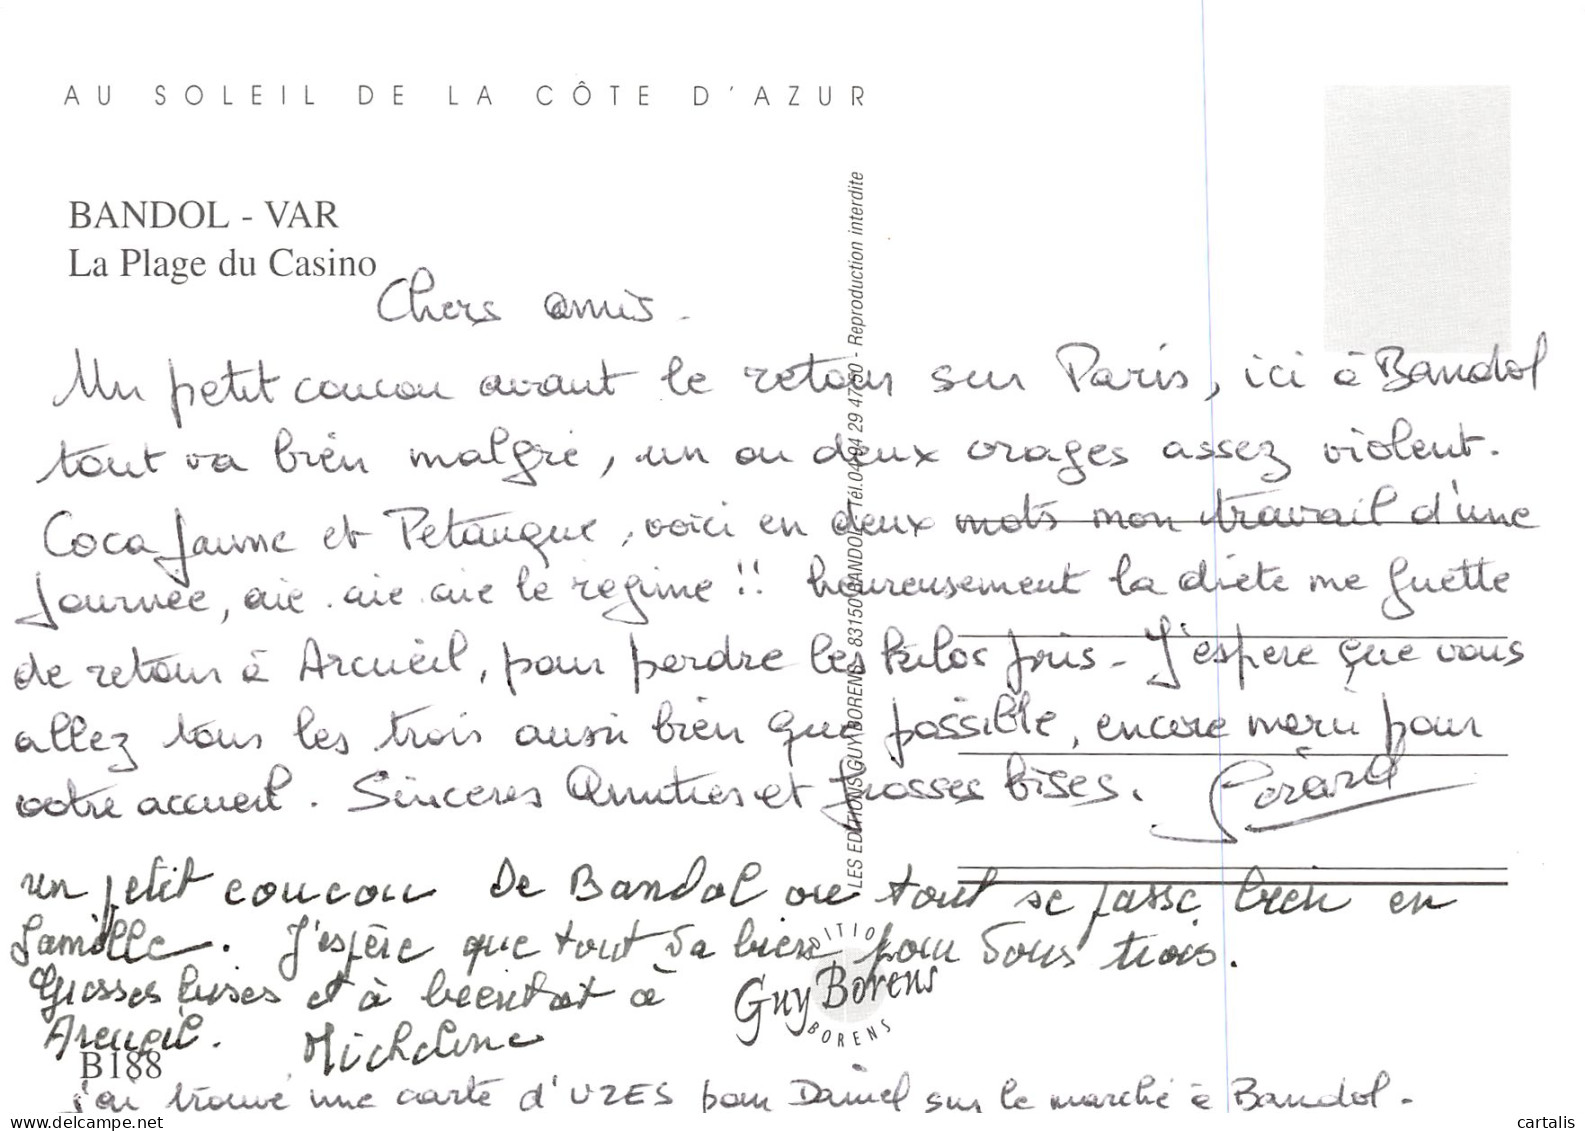 AU SOLEIL DE LA CÔTE D'AZUR
BANDOL - VAR
La Plage du Casino
Chers amis.
Un petit coucou avant le retour sur Paris, ici à Bandol
tout va bien malgré, un ou deux orages assez violent.
Coca Jaune et Petanque, voici en deux mots mon travail d'une
Journée, aie aie aie le regime !! heureusement la diete me guette
de retour à Arcueil, pour perdre les kilos pris - J'espere que vous
allez tous les trois aussi bien que possible, encore merci pour
votre accueil. Sinceres Amities et grosses bises. Gérard
un petit coucou de Bandol ou tout se passe bien en
famille. J'espère que tout va bien pour vous trois.
Grosses bises et à bientot à
Arcueil. Micheline
B188
j'ai trouvé une carte d'UZES pour Daniel sur le marché à Bandol.
LES EDITIONS GUY BORENS - 83150 BANDOL - Tél.04 94 29 47 50 - Reproduction interdite
EDITIONS
Guy Borens
BORENS
delcampe.net
cartalis